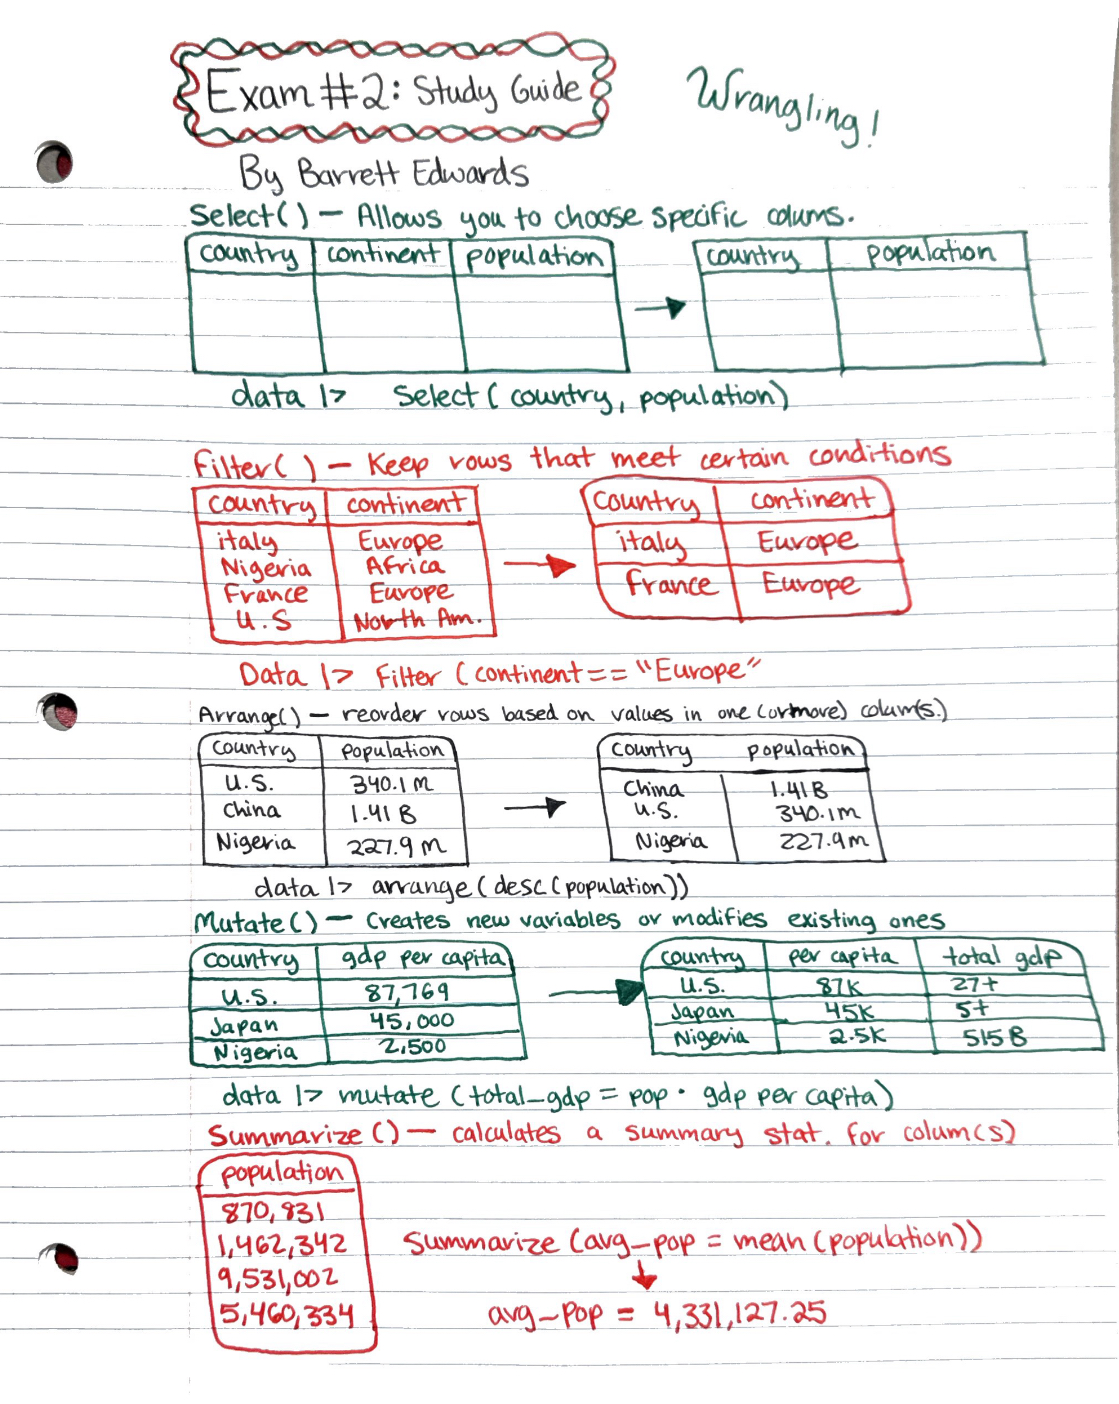 Exam #2: Study Guide
Wrangling!
By Barrett Edwards
Select() — Allows you to choose specific colums.
country continent population
country population
data |> Select (country, population)
Filter( ) — Keep rows that meet certain conditions
country continent
italy Europe
Nigeria Africa
France Europe
U.S North Am.
country continent
italy Europe
France Europe
Data |> Filter (continent == "Europe"
Arrange() — reorder rows based on values in one (or more) colum(s.)
country population
U.S. 340.1 m
China 1.41 B
Nigeria 227.9 m
country population
China 1.41 B
U.S. 340.1m
Nigeria 227.9m
data |> arrange (desc (population))
Mutate() — Creates new variables or modifies existing ones
country gdp per capita
U.S. 87,769
Japan 45,000
Nigeria 2,500
country per capita total gdp
U.S. 87K 27t
Japan 45K 5t
Nigeria 2.5K 515 B
data |> mutate (total_gdp = pop · gdp per capita)
Summarize () — calculates a summary stat. for colum(s)
population
870,831
1,462,342
9,531,002
5,460,334
Summarize (avg_pop = mean (population))
avg_pop = 4,331,127.25